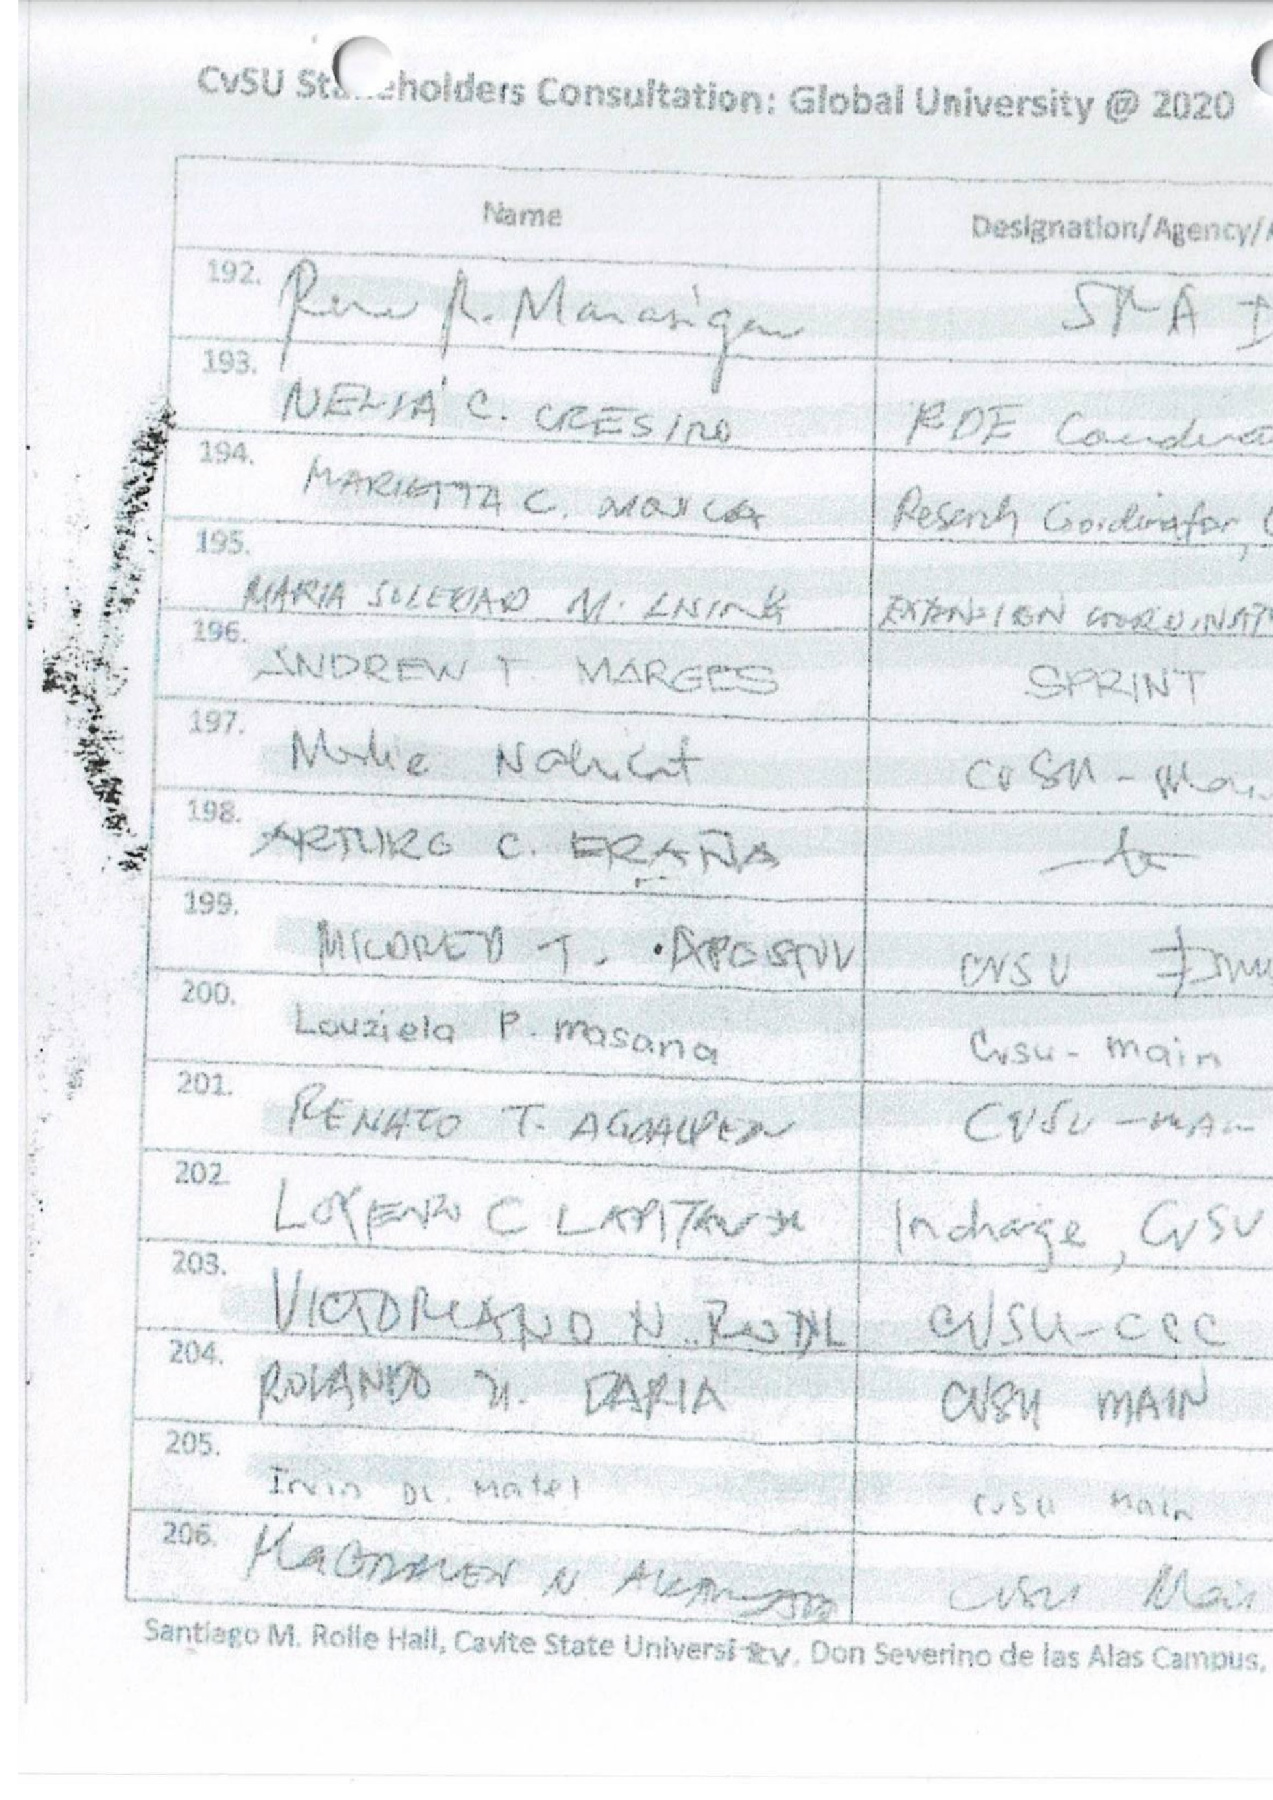 CvSU Stakeholders Consultation: Global University @ 2020
Name
Designation/Agency/
192. Rene R. Marasigan SM-A
193. NELIA C. CRESINO RDE Coordinat
194. MARIETTA C. MOJICA Reserch Coordinator,
195. MARIA SOLEDAD M. LISING EXTENSION COORDINAT
196. ANDREW T. MARGES SPRINT
197. Nabicat CvSU - Mai
198. ARTURO C. ERAÑA
199. MILDRED T. APOSTOL CVSU
200. Louziela P. Masana Cvsu - main
201. RENATO T. AGDALPEN CVSU - MAIN
202. LORENZO C LAPITAN JR Incharge, CvSU
203. VICTORIANO N. CVSU-CCC
204. ROLANDO DARIA CVSU MAIN
205. Irvin DL. Matel CvSU Main
206. N CVSU Mai
Santiago M. Rolle Hall, Cavite State University, Don Severino de las Alas Campus,